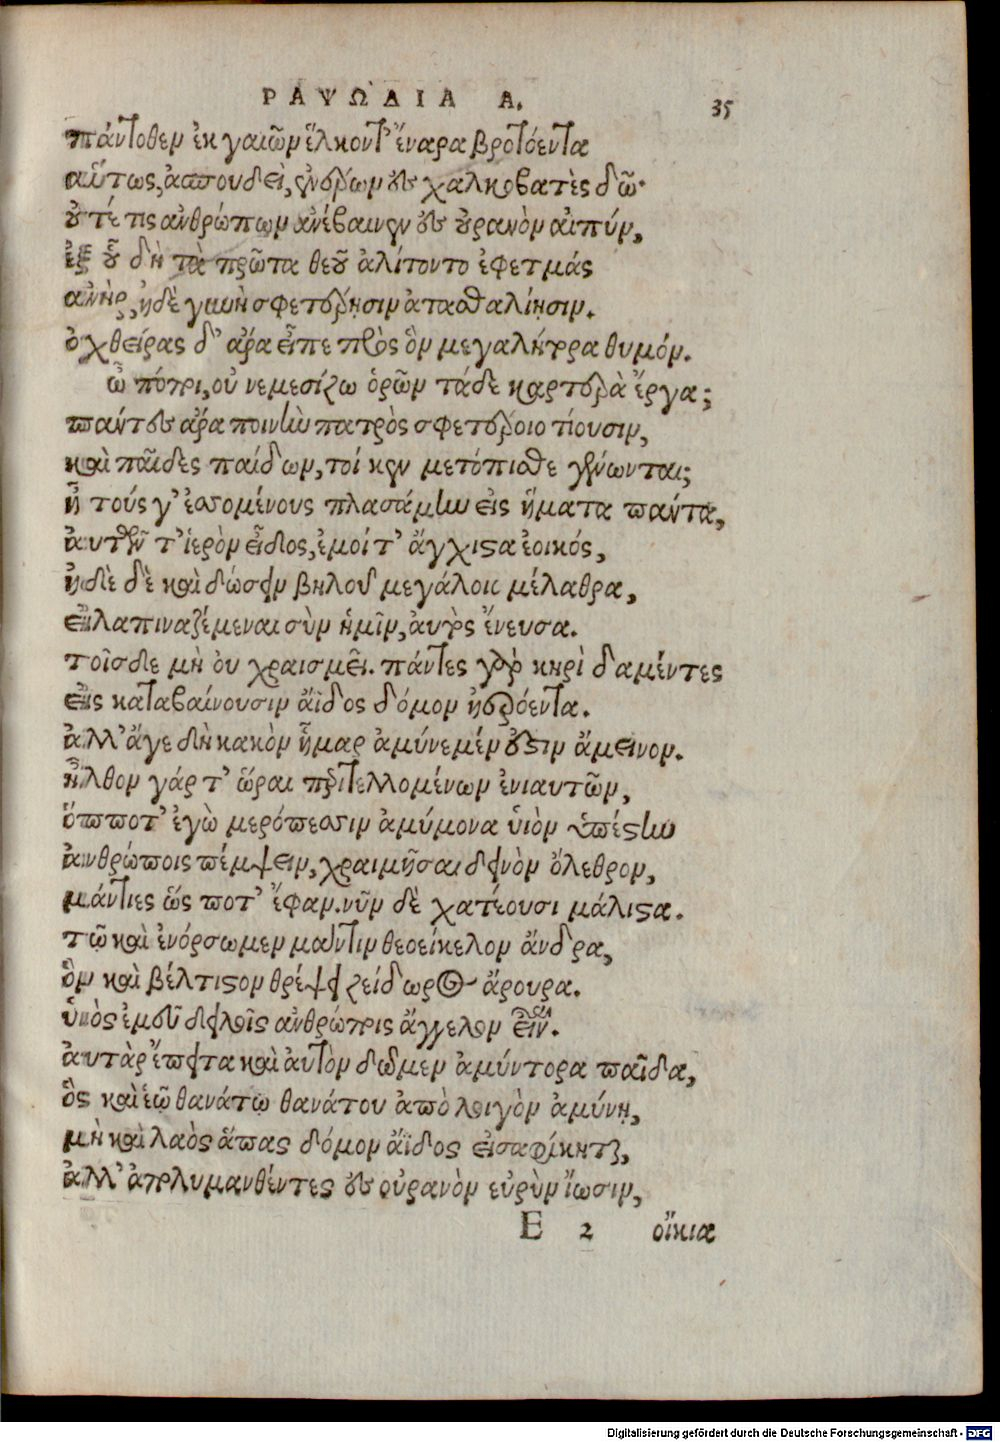 ΡΑΨΩΔΙΑ Α. 35
πάντοθεν ἐκ γαιῶν ἕλκοντ' ἔναρα βροτόεντα
αὕτως, ἀσπουδεὶ, ἐνέρων ἐς χαλκοβατὲς δῶ·
οὔτέ τις ἀνθρώπων ἀνέβαινεν ἐς οὐρανὸν αἰπύν,
ἐξ οὗ δὴ τὰ πρῶτα θεοῦ ἀλίτοντο ἐφετμάς
ἀνὴρ, ἠδὲ γυνὴ σφετέρῃσιν ἀτασθαλίῃσιν.
ὀχθείρας δ' ἄρα εἶπε πρὸς ὃν μεγαλήτορα θυμόν.
ὦ πόποι, οὐ νεμεσίζω ὁρῶν τάδε καρτερὰ ἔργα;
πάντες ἄρα ποινὴν πατρὸς σφετέροιο τίουσιν,
καὶ παῖδες παίδων, τοί κεν μετόπισθε γένωνται;
ἦ τούς γ' ἐσομένους πλασάμην εἰς ἤματα πάντα,
αὐτῶν τ' ἱερὸν εἶδος, ἐμοί τ' ἄγχιστα ἐοικός,
ἠδὲ δὲ καὶ δώσειν βηλοῦ μεγάλοιο μέλαθρα,
εἰλαπιναζέμεναι σὺν ἡμῖν, αὐτὸς ἔνευσα.
τοῖσδε μὴ οὐ χραισμεῖ. πάντες γὰρ κηρὶ δαμέντες
εἰς καταβαίνουσιν ἄϊδος δόμον ἠερόεντα.
ἀλλ' ἄγε δὴ κακὸν ἦμαρ ἀμύνεμέν οὖσιν ἄμεινον.
ἦλθον γάρ τ' ὧραι περιτελλομένων ἐνιαυτῶν,
ὅπποτ' ἐγὼ μερόπεσσιν ἀμύμονα υἱὸν ὑπέστην
ἀνθρώποις πέμψειν, χραισμῆσαι δεινὸν ὄλεθρον,
μάντιες ὥς ποτ' ἔφαν. νῦν δὲ χατέουσι μάλιστα.
τῷ καὶ ἐνόρσωμεν μάντιν θεοείκελον ἄνδρα,
ὃν καὶ βέλτιστον θρέψε ζείδωρος ἄρουρα.
υἱὸς ἐμοῦ δειλοῖς ἀνθρώποις ἄγγελον εἶναι.
αὐτὰρ ἔπειτα καὶ αὐτὸν δῶμεν ἀμύντορα παῖδα,
ὃς καὶ ἑῷ θανάτῳ θανάτου ἀπὸ λοιγὸν ἀμύνῃ,
μὴ καὶ λαὸς ἅπας δόμον ἄϊδος εἰσαφίκηται,
ἀλλ' ἀπολυμανθέντες ἐς οὐρανὸν εὐρὺν ἴωσιν,
E 2 οἴκια
Digitalisierung gefördert durch die Deutsche Forschungsgemeinschaft - DFG